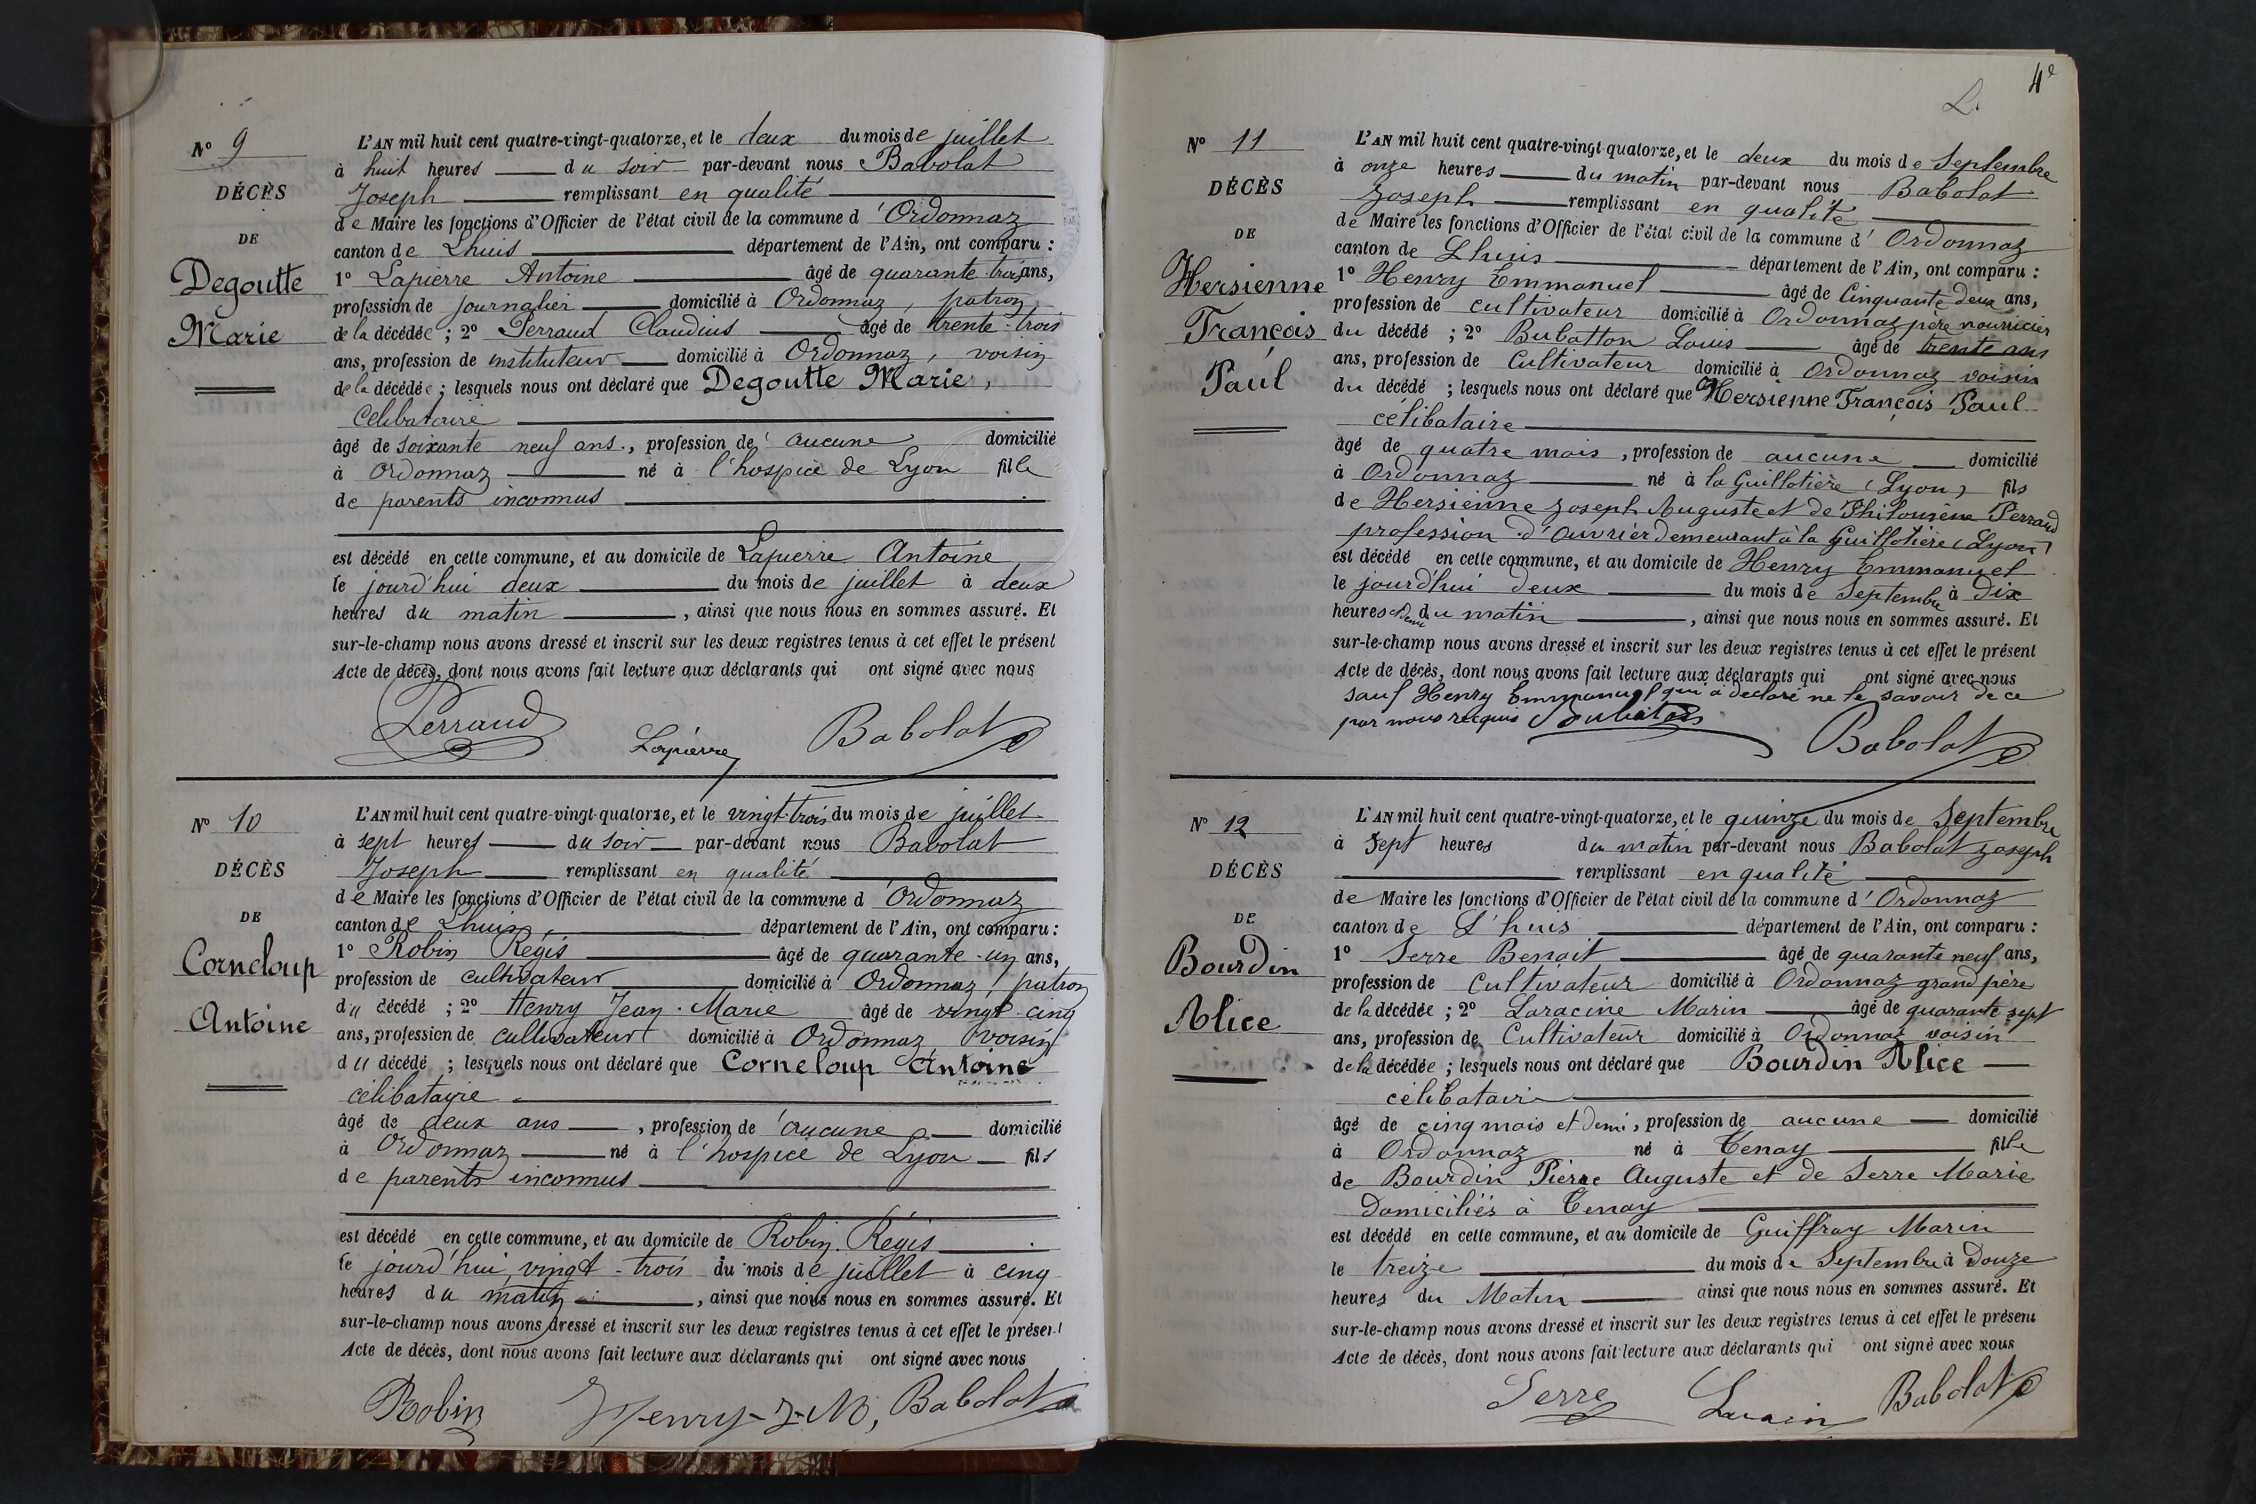 Nº 9
DÉCÈS
DE
Degoutte
Marie
L'AN mil huit cent quatre-vingt-quatorze, et le deux du mois de juillet
à huit heures du soir par-devant nous Babolat
Joseph remplissant en qualité
de Maire les fonctions d'Officier de l'état civil de la commune d'Ordonnaz
canton de Lhuis département de l'Ain, ont comparu :
1º Lapierre Antoine âgé de quarante-trois ans,
profession de journalier domicilié à Ordonnaz, patron
de la décédée ; 2º Perraud Claudius âgé de trente-trois
ans, profession de instituteur domicilié à Ordonnaz, voisin
de la décédée ; lesquels nous ont déclaré que Degoutte Marie,
célibataire
âgé de soixante neuf ans, profession de aucune domicilié
à Ordonnaz né à l'hospice de Lyon fille
de parents inconnus
est décédé en cette commune, et au domicile de Lapierre Antoine
le jourd'hui deux du mois de juillet à deux
heures du matin, ainsi que nous nous en sommes assuré. Et
sur-le-champ nous avons dressé et inscrit sur les deux registres tenus à cet effet le présent
Acte de décès, dont nous avons fait lecture aux déclarants qui ont signé avec nous
Perraud Lapierre Babolat
Nº 10
DÉCÈS
DE
Corneloup
Antoine
L'AN mil huit cent quatre-vingt-quatorze, et le vingt-trois du mois de juillet
à sept heures du soir par-devant nous Babolat
Joseph remplissant en qualité
de Maire les fonctions d'Officier de l'état civil de la commune d'Ordonnaz
canton de Lhuis département de l'Ain, ont comparu :
1º Robin Régis âgé de quarante-un ans,
profession de cultivateur domicilié à Ordonnaz, patron
du décédé ; 2º Henry Jean-Marie âgé de vingt-cinq
ans, profession de cultivateur domicilié à Ordonnaz, voisin
du décédé ; lesquels nous ont déclaré que Corneloup Antoine
célibataire
âgé de deux ans, profession de aucune domicilié
à Ordonnaz né à l'hospice de Lyon fils
de parents inconnus
est décédé en cette commune, et au domicile de Robin Régis
le jourd'hui vingt-trois du mois de juillet à cinq
heures du matin, ainsi que nous nous en sommes assuré. Et
sur-le-champ nous avons dressé et inscrit sur les deux registres tenus à cet effet le présent
Acte de décès, dont nous avons fait lecture aux déclarants qui ont signé avec nous
Robin Henry-J-M, Babolat
4e
L.
Nº 11
DÉCÈS
DE
Hersienne
François
Paul
L'AN mil huit cent quatre-vingt-quatorze, et le deux du mois de Septembre
à onze heures du matin par-devant nous Babolat
Joseph remplissant en qualité
de Maire les fonctions d'Officier de l'état civil de la commune d'Ordonnaz
canton de Lhuis département de l'Ain, ont comparu :
1º Henry Emmanuel âgé de Cinquante deux ans,
profession de cultivateur domicilié à Ordonnaz père nourricier
du décédé ; 2º Bubatton Louis âgé de trente ans
ans, profession de Cultivateur domicilié à Ordonnaz voisin
du décédé ; lesquels nous ont déclaré que Hersienne François Paul
célibataire
âgé de quatre mois, profession de aucune domicilié
à Ordonnaz né à la Guillotière (Lyon) fils
de Hersienne Joseph Auguste et de Philomène Perraud
profession d'ouvrier demeurant à la Guillotière (Lyon)
est décédé en cette commune, et au domicile de Henry Emmanuel
le jourd'hui deux du mois de Septembre à Dix
heures et Demi du matin, ainsi que nous nous en sommes assuré. Et
sur-le-champ nous avons dressé et inscrit sur les deux registres tenus à cet effet le présent
Acte de décès, dont nous avons fait lecture aux déclarants qui ont signé avec nous
sauf Henry Emmanuel qui a déclaré ne le savoir de ce
par nous requis Babolat
Nº 12
DÉCÈS
DE
Bourdin
Alice
L'AN mil huit cent quatre-vingt-quatorze, et le quinze du mois de Septembre
à Sept heures du matin par-devant nous Babolat Joseph
remplissant en qualité
de Maire les fonctions d'Officier de l'état civil de la commune d'Ordonnaz
canton de L'huis département de l'Ain, ont comparu :
1º Serre Benoit âgé de quarante neuf ans,
profession de Cultivateur domicilié à Ordonnaz grand père
de la décédée ; 2º Laracine Marin âgé de quarante sept
ans, profession de Cultivateur domicilié à Ordonnaz voisin
de la décédée ; lesquels nous ont déclaré que Bourdin Alice
célibataire
âgé de cinq mois et demi, profession de aucune domicilié
à Ordonnaz né à Tenay fille
de Bourdin Pierre Auguste et de Serre Marie
Domiciliés à Tenay
est décédé en cette commune, et au domicile de Guiffray Marin
le treize du mois de Septembre à Douze
heures du Matin ainsi que nous nous en sommes assuré. Et
sur-le-champ nous avons dressé et inscrit sur les deux registres tenus à cet effet le présent
Acte de décès, dont nous avons fait lecture aux déclarants qui ont signé avec nous
Serre Babolat